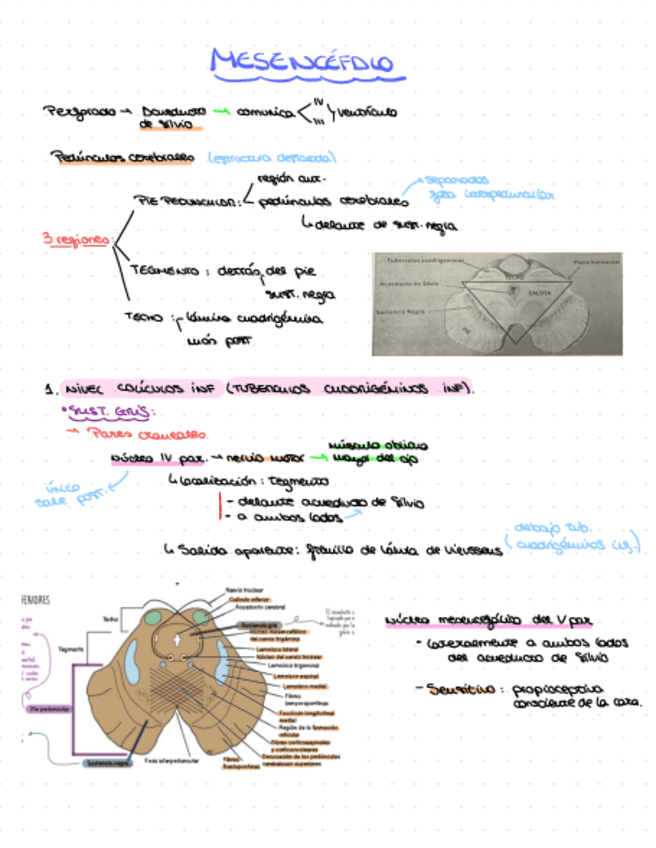 MESENCÉFALO
Perforado → Dacueducto → comunica < IV ventrículo
de Silvio III
Pedúnculos cerebrales (estructura derivada)
región ant.
PIE PEDUNCULAR: pedúnculos cerebrales → separados
fosa interpeduncular
↳ delante de sust. negra
3 regiones:
TEGMENTO : detrás del pie
sust. negra
TECHO : lámina cuadrigémina
más post
Tubérculos cuadrigéminos
Plano horizontal
TECHO
Acueducto de Silvio
CALOTA
Sustancia Negra
PIE
1. NIVEL COLÍCULOS INF (TUBÉRCULOS CUADRIGÉMINOS INF).
• SUST. GRIS:
→ Pares craneales
Núcleo IV par. → nervio motor → músculo oblicuo
mayor del ojo
único
sale post.
↳ Localización : Tegmento
- delante acueducto de Silvio
- a ambos lados
↳ Salida aparente: frenillo de válvula de Vieussens
debajo tub.
(cuadrigéminos inf.)
FERIORES
Techo
Tegmento
Pie peduncular
Sustancia negra
Fosa interpeduncular
Nervio troclear
Colículo inferior
Acueducto cerebral
Sustancia gris
Núcleo mesencefálico
del nervio trigémino
Lemnisco lateral
Núcleo del nervio troclear
Lemnisco trigeminal
Lemnisco espinal
Lemnisco medial
Fibras
temporopontinas
Fascículo longitudinal
medial
Región de la formación
reticular
Fibras corticoespinales
y corticonucleares
Decusación de los pedúnculos
cerebelosos superiores
Fibras
frontopontinas
Núcleo mesencefálico del V par
- Lateralmente a ambos lados
del acueducto de Silvio
- Sensitivo : propioceptiva
consciente de la cara.